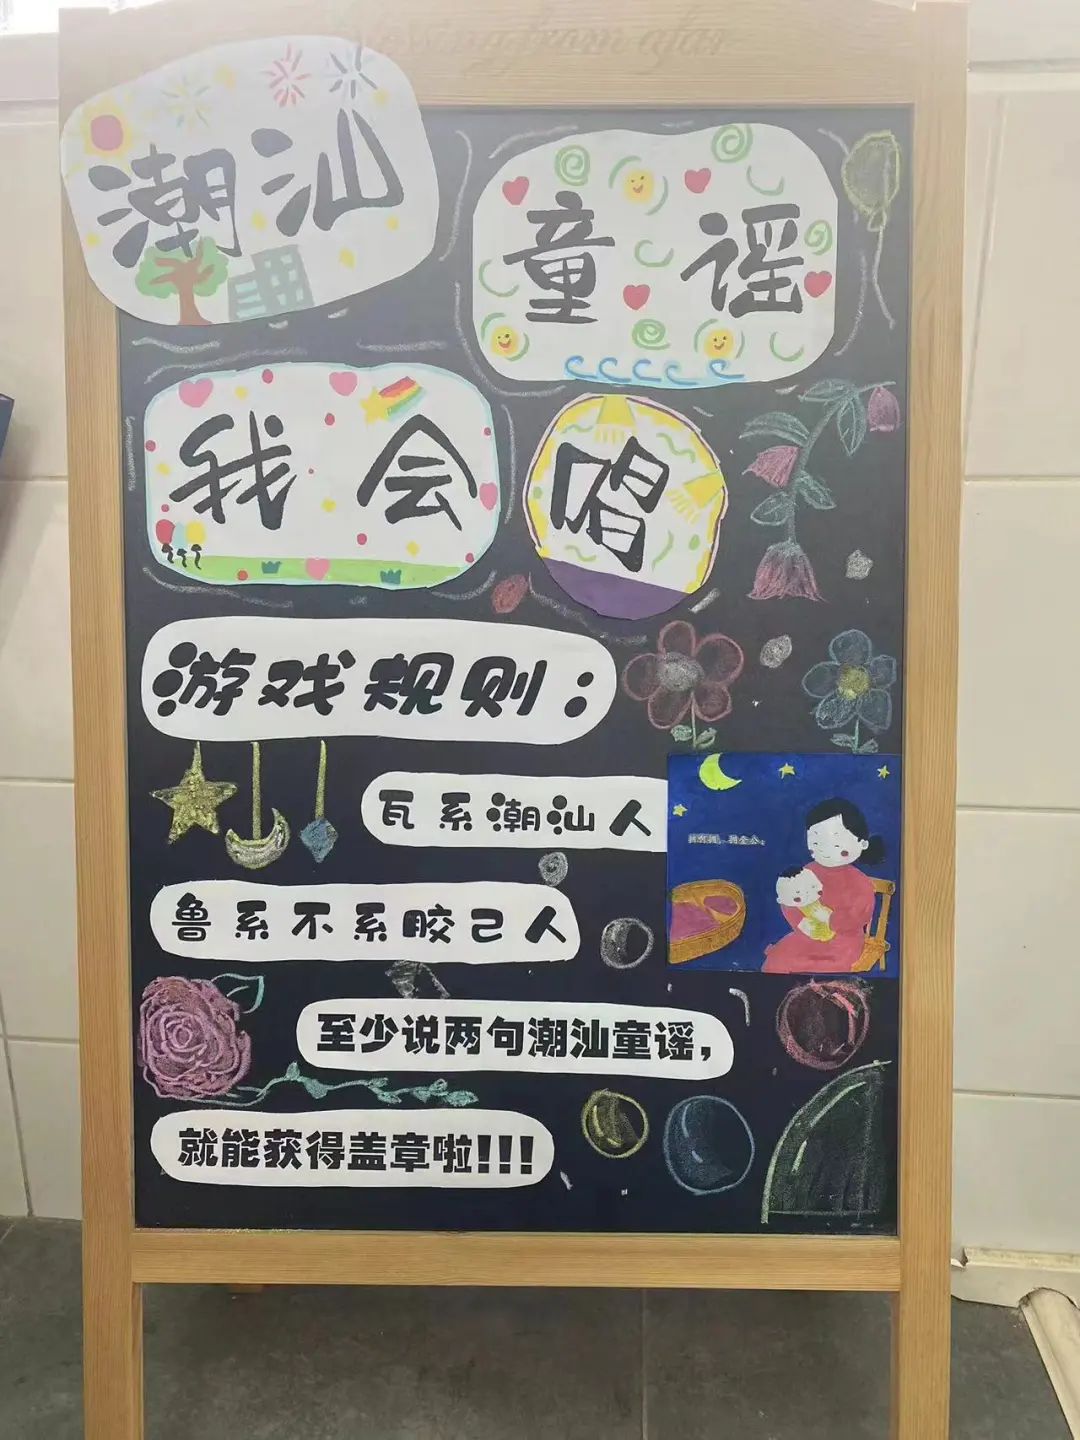 潮汕
童谣
我会
唱
游戏规则：
瓦系潮汕人
鲁系不系胶己人
至少说两句潮汕童谣，
就能获得盖章啦!!!